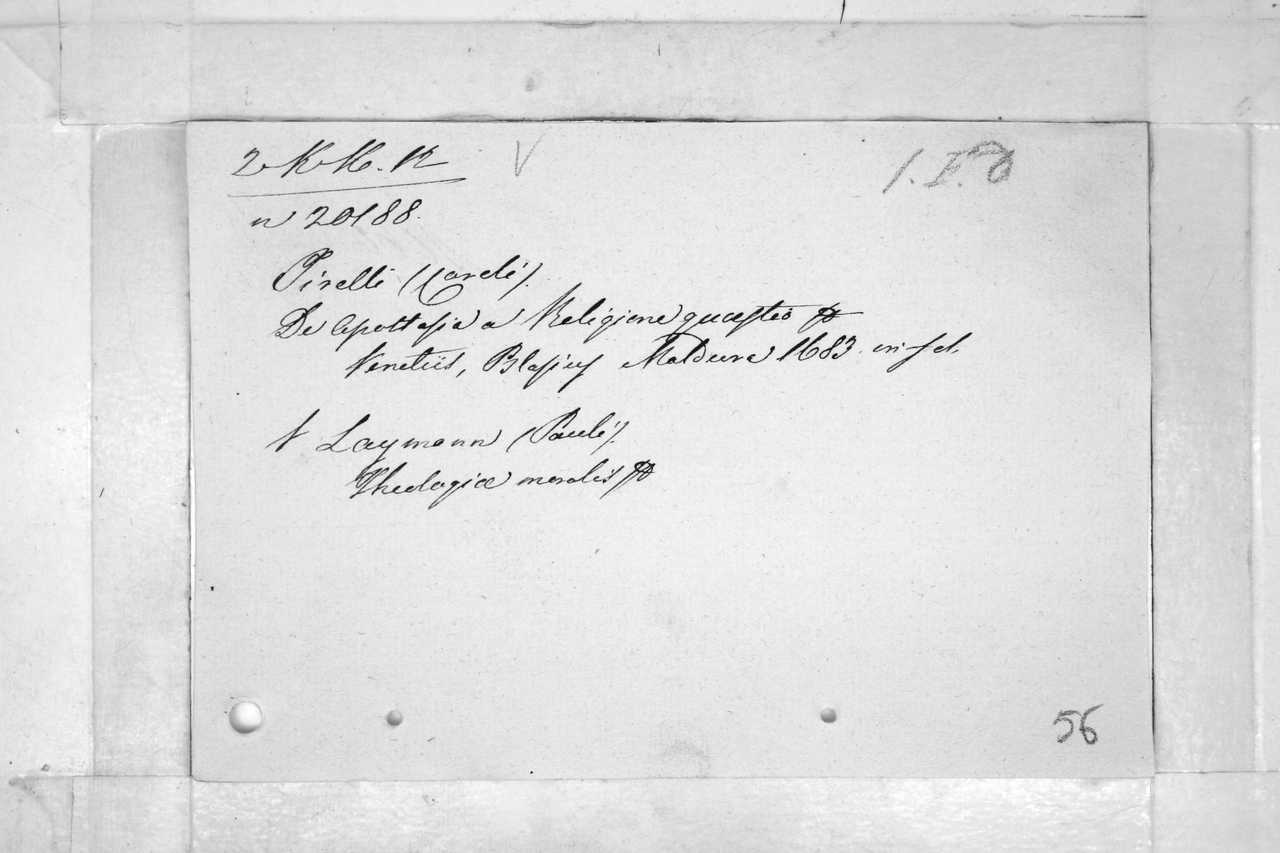 2 K H. R V 1. F. 8
n 20188.
Pirelli (Caroli).
De Apostasia a Religione quaestio
Venetiis, Blasius Maldura 1683. in fol.
V Laymann (Pauli).
Theologiae moralis
56